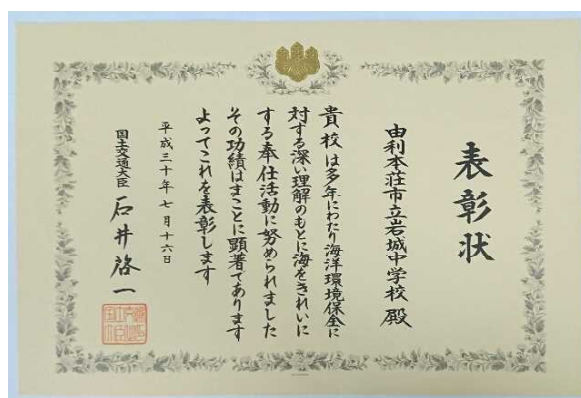 表彰状
由利本荘市立岩城中学校 殿
貴校は多年にわたり海洋環境保全に
対する深い理解のもとに海をきれいに
する奉仕活動に努められました
その功績はまことに顕著であります
よってこれを表彰します
平成三十年七月十六日
国土交通大臣 石井啓一